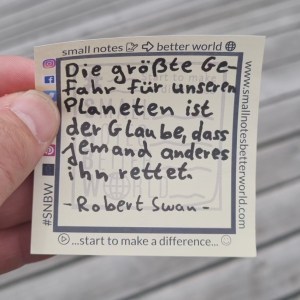 small notes ⇨ better world
Die größte Ge-
fahr für unseren
Planeten ist
der Glaube, dass
jemand anderes
ihn rettet.
- Robert Swan -
...start to make a difference...
#SNBW
www.smallnotesbetterworld.com